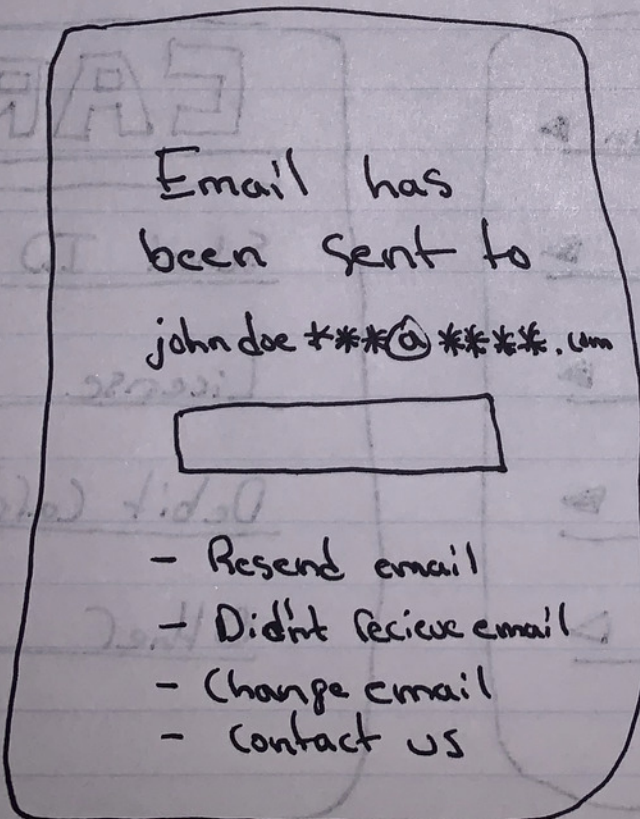 Email has
been sent to
johndoe***@****.com
- Resend email
- Did'nt recieve email
- Change email
- Contact us